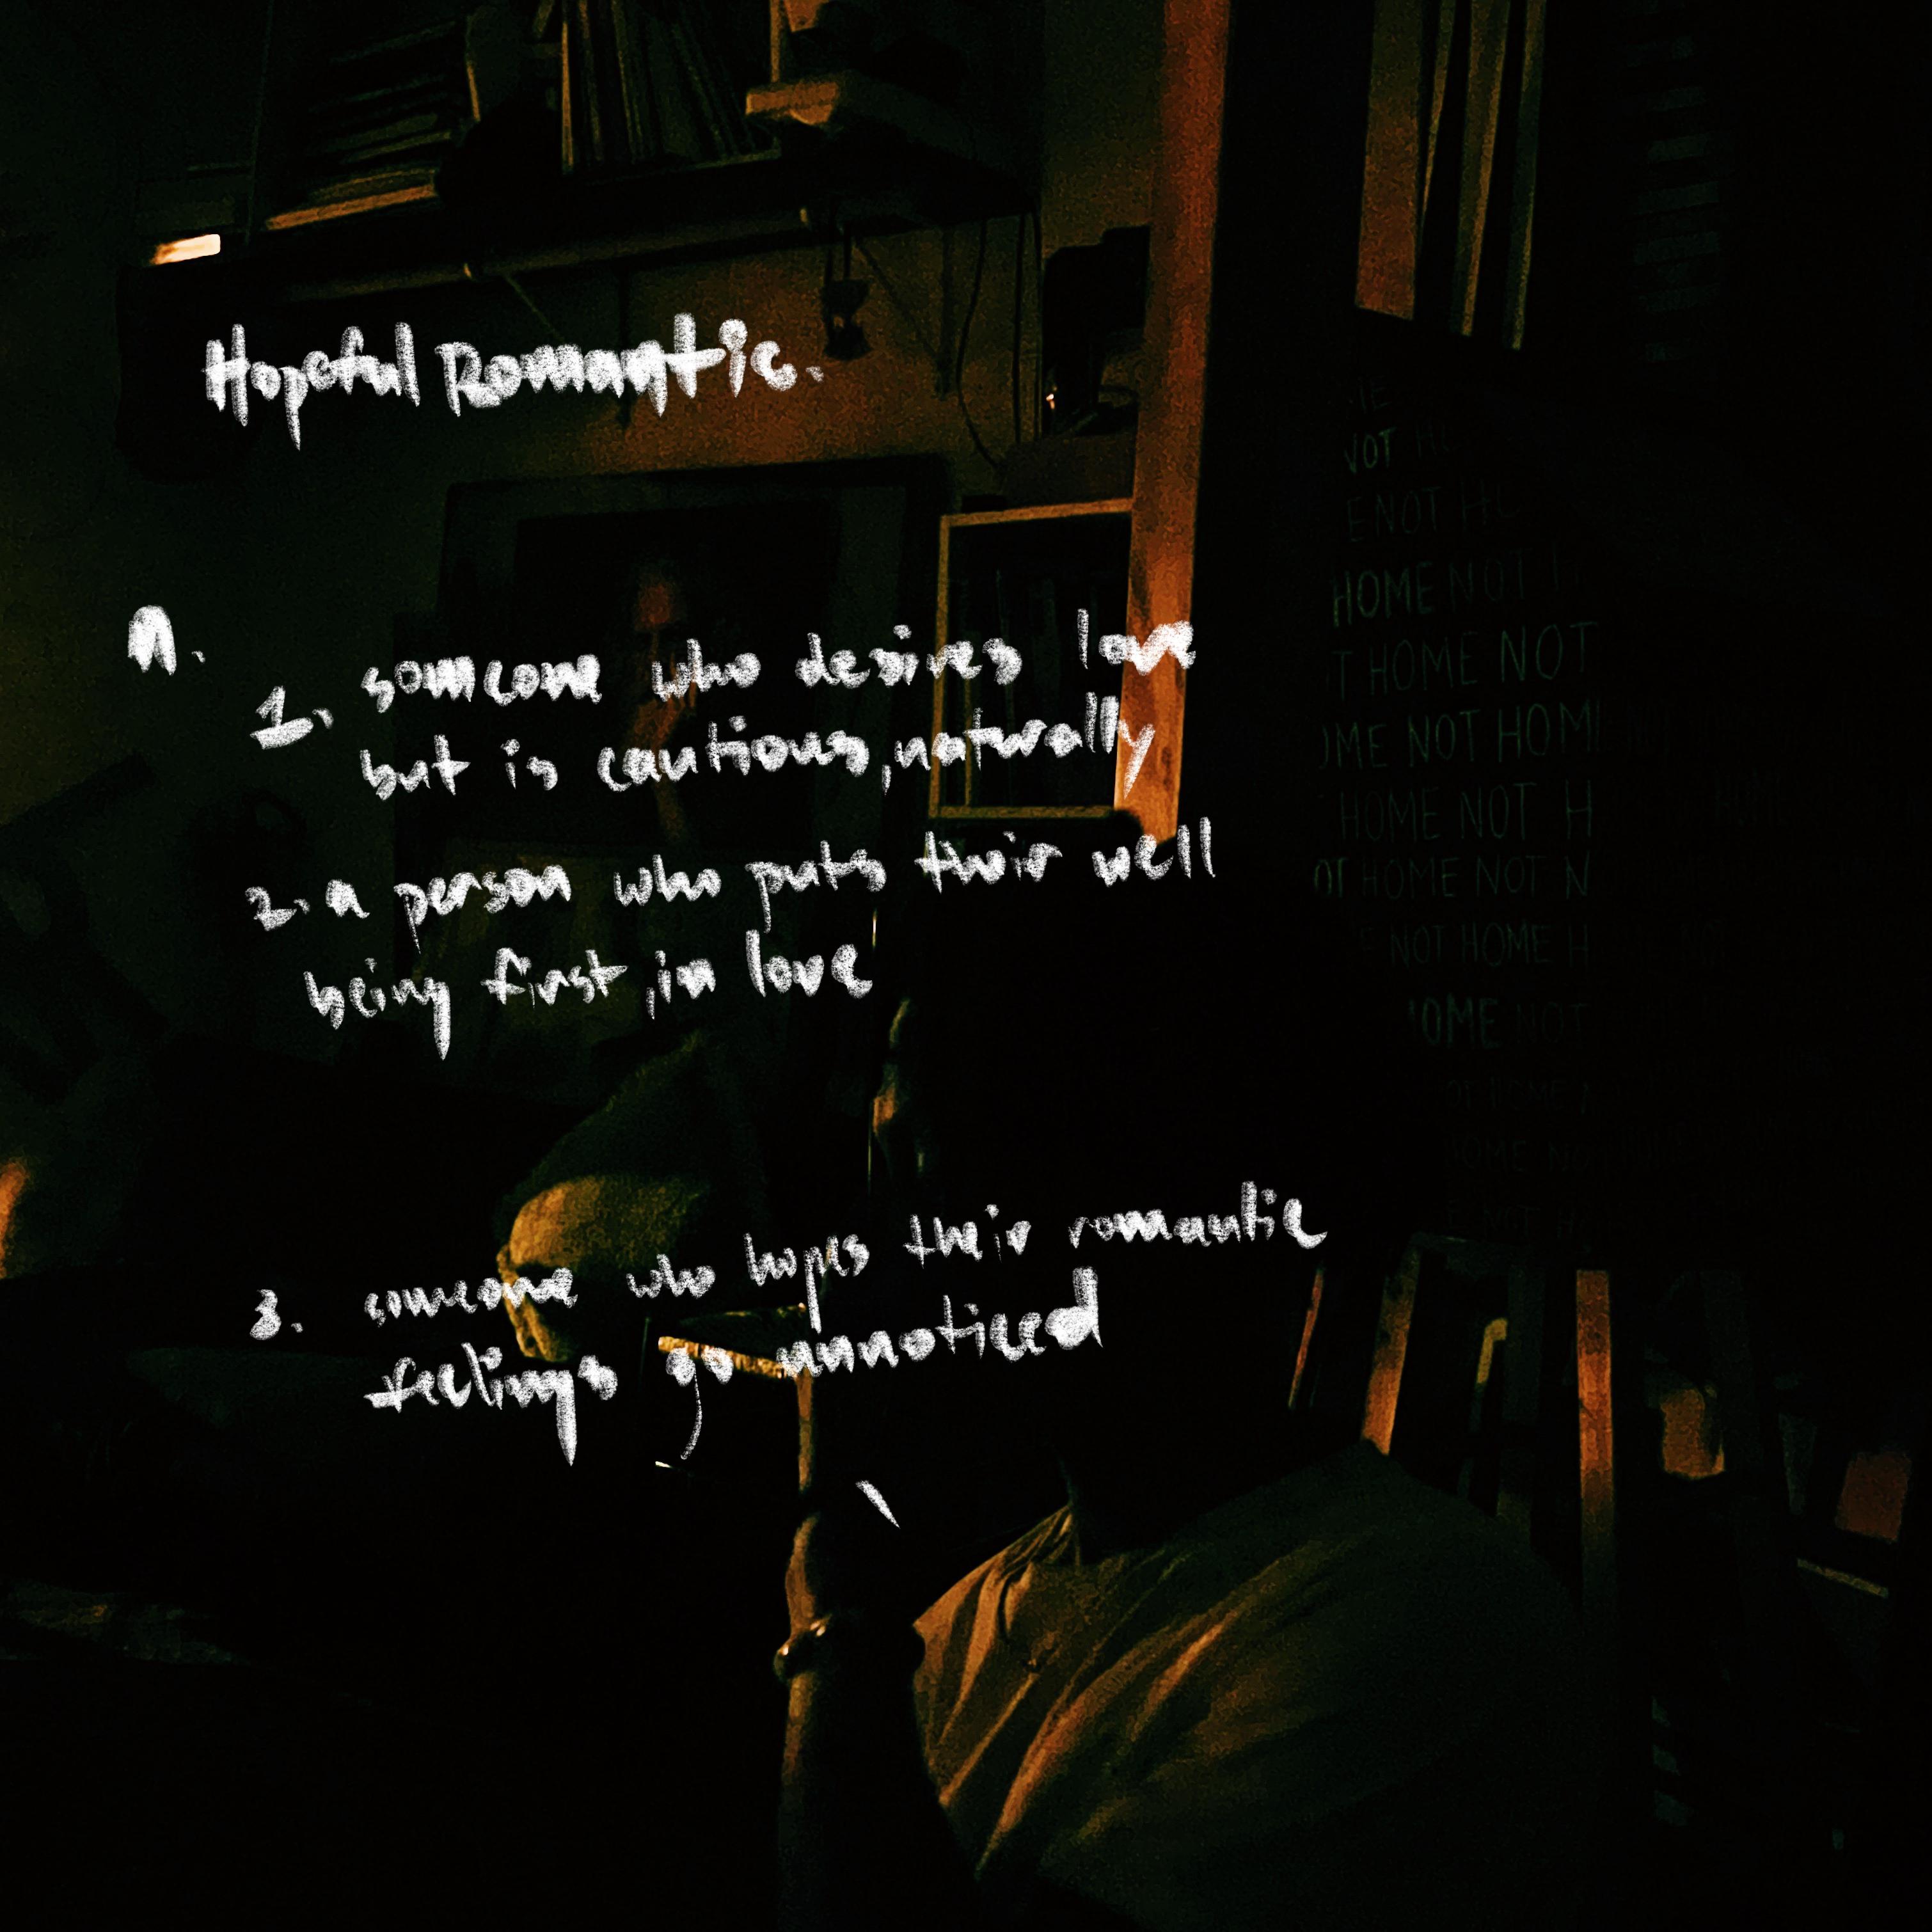 Hopeful Romantic.
n.
1. someone who desires love
but is cautious, naturally
2. a person who puts their well
being first, in love
3. someone who hopes their romantic
feelings go unnoticed
NOT
ENOT
HOME NOT
T HOME NOT
OME NOT HOME
HOME NOT H
OT HOME NOT N
NOT HOME H
OME NOT